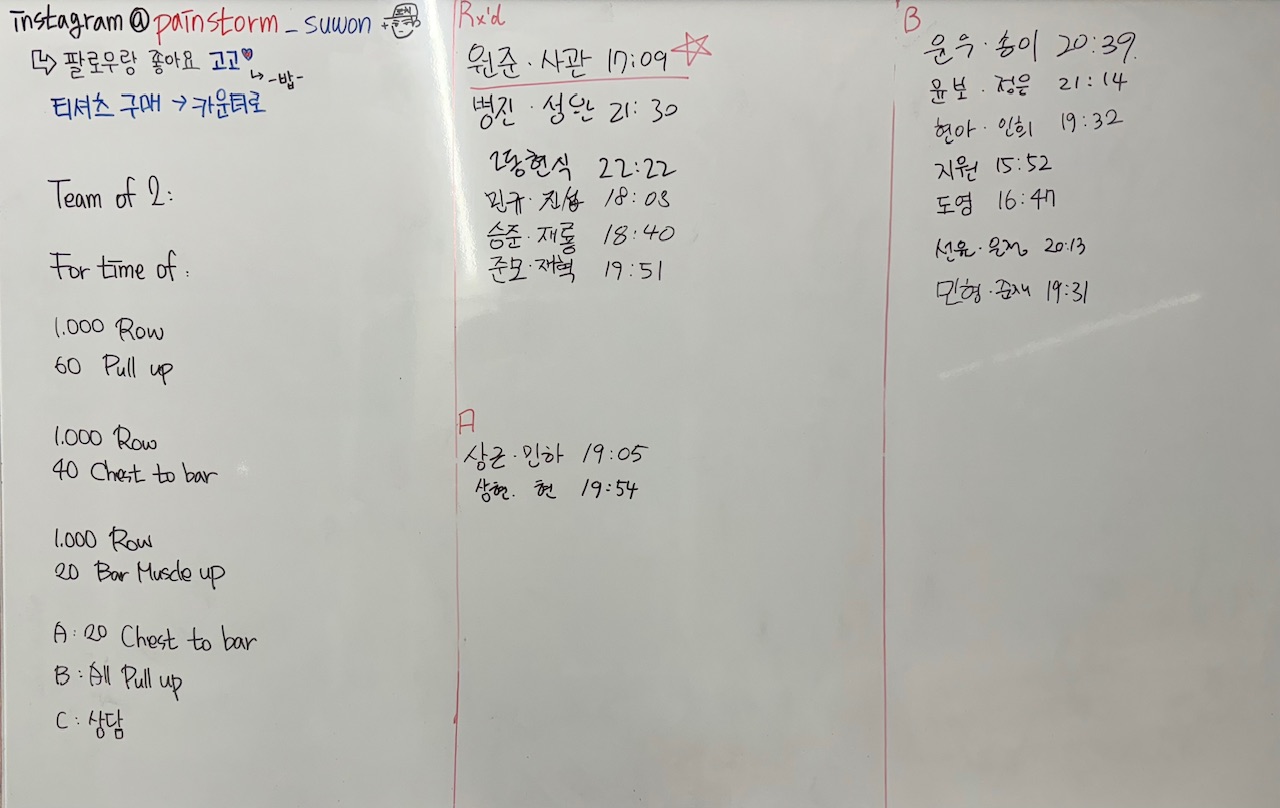 instagram@painstorm_suwon
팔로우랑 좋아요 고고
-밥-
티셔츠 구매 → 카운터로
Team of 2:
For time of:
1.000 Row
60 Pull up
1.000 Row
40 Chest to bar
1.000 Row
20 Bar Muscle up
A: 20 Chest to bar
B: All Pull up
C: 상담
Rx'd
원준·사관 17:09
병진·성완 21:30
2동현식 22:22
민규· 18:03
승준·재룡 18:40
준모·재혁 19:51
A
상근·민하 19:05
상현. 현 19:54
B
윤우·송이 20:39
윤보·정은 21:14
현아·인희 19:32
지원 15:52
도영 16:47
선유·윤정 20:13
민형·준재 19:31